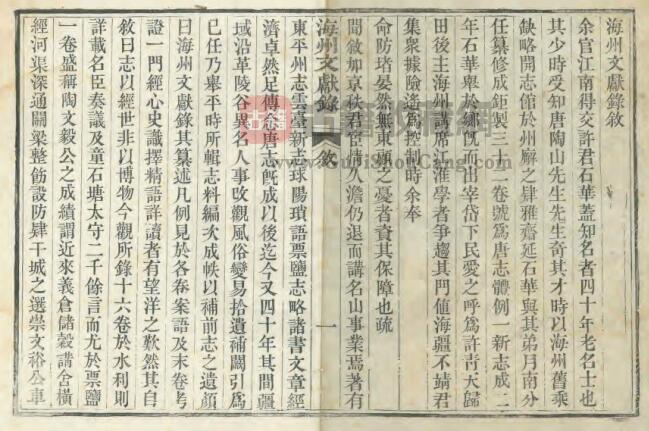 海州文獻錄敘
余官江南得交許君石華蓋知名者四十年老名士也
其少時受知唐陶山先生先生奇其才時以海州舊乘
缺略開志館於州廨之肆雅齋延石華與其弟月南分
任纂修成鉅製三十二卷號爲唐志體例一新志成二
年石華舉於鄉旣而出宰岱下民愛之呼爲許靑天歸
田後主海州講席江淮學者爭趨其門値海疆不靖君
集衆據險遙爲控制時余奉
命防堵晏然無東顧之憂者資其保障也疏
聞敘如京秩君宦情久澹仍退而講名山事業焉著有
海州文獻錄 敘 一
東平州志雲臺新志球陽瑣語票鹽志略諸書文章經
濟卓然足傳念唐志旣成以後迄今又四十年其間疆
域沿革陵谷異名人事改觀風俗變易拾遺補闕引爲
已任乃舉平時所輯志料編次成帙以補前志之遺顏
曰海州文獻錄其纂述凡例見於各卷案語及末卷考
證一門經心史識擇精語詳讀者有望洋之歎然其自
敘曰志以經世非以博物今觀所錄十六卷於水利則
詳載名臣奏議及童石塘太守二千餘言而尤於票鹽
一卷盛稱陶文毅公之成績謂近來義倉儲穀講舍橫
經河渠深通關梁整飭設防肆干城之選崇文裕公車
古籍收藏網
www.GujiShouCang.com